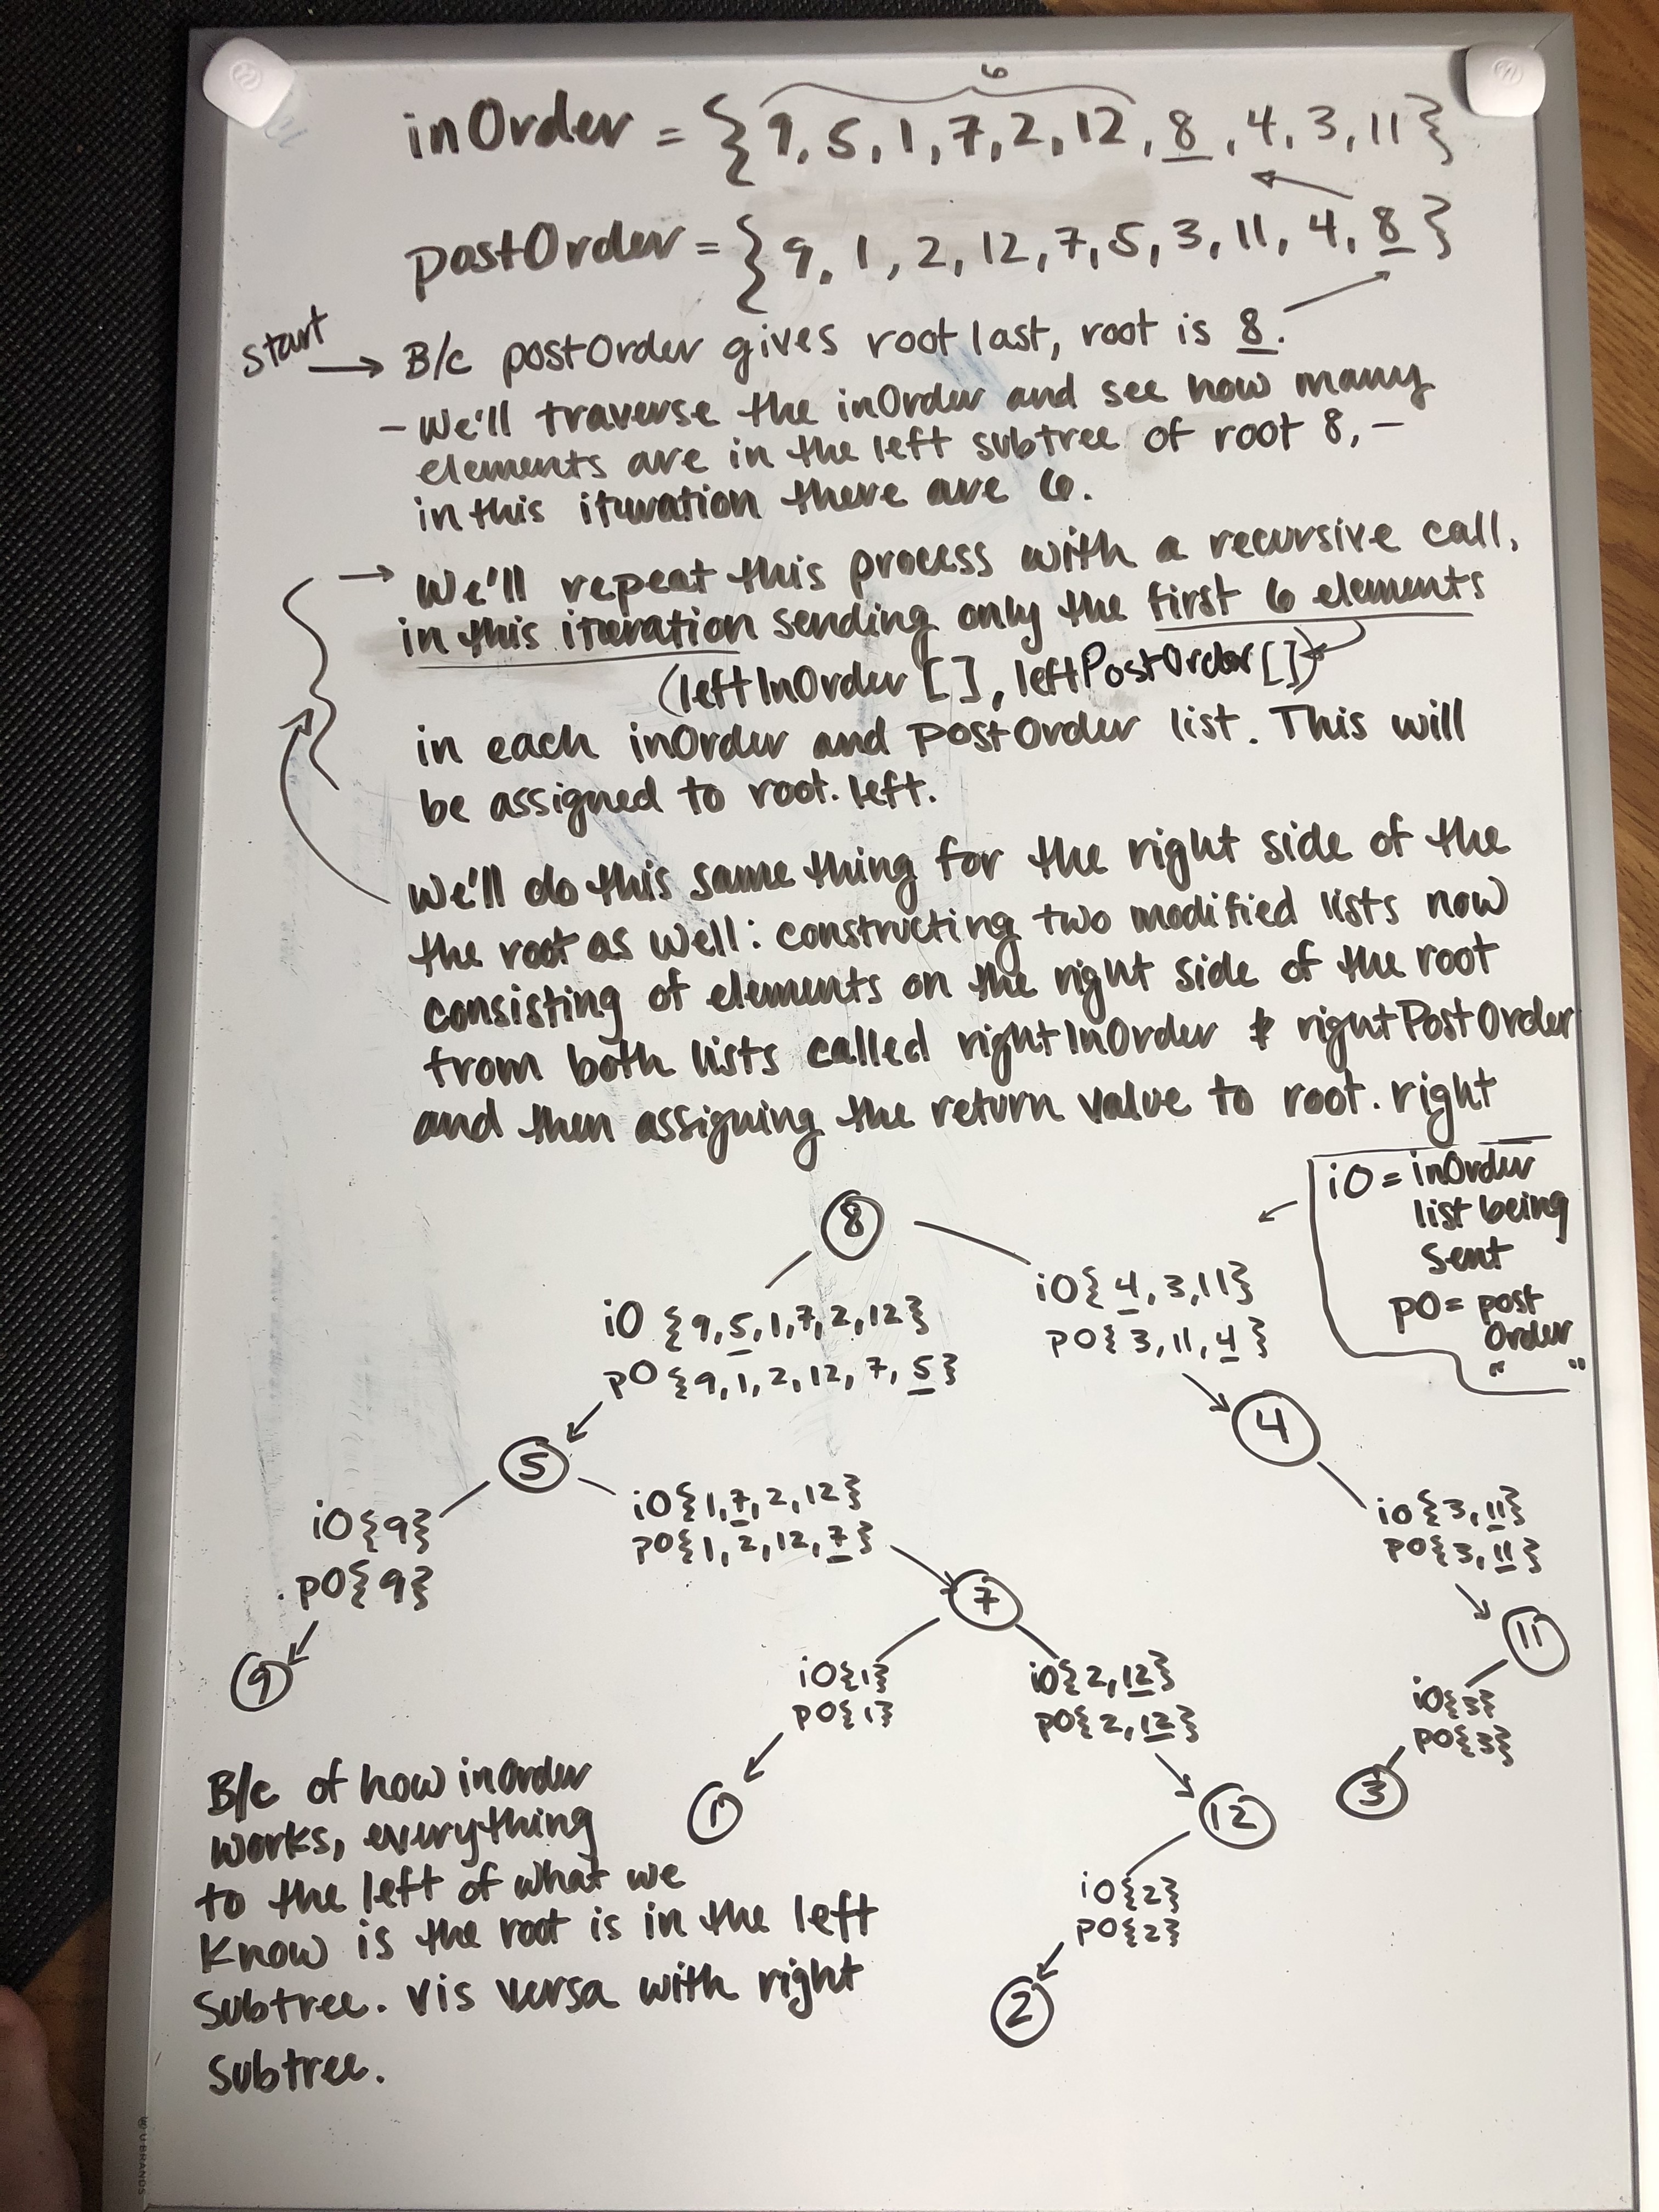 6
inOrder = {9, 5, 1, 7, 2, 12, 8, 4, 3, 11}
postOrder = {9, 1, 2, 12, 7, 5, 3, 11, 4, 8}
start → B/c postOrder gives root last, root is 8.
- We'll traverse the inOrder and see how many
elements are in the left subtree of root 8, -
in this ituration there are 6.
→ We'll repeat this process with a recursive call,
in this iteration sending only the first 6 elements
(leftInOrder [], leftPostOrder[])
in each inOrder and postOrder list. This will
be assigned to root.left.
We'll do this same thing for the right side of the
the root as well: constructing two modified lists now
consisting of elements on the right side of the root
from both lists called rightInOrder & rightPostOrder
and then assigning the return value to root.right
iO = inOrder
list being
sent
pO = post
Order
" "
8
iO {9, 5, 1, 7, 2, 12}
pO {9, 1, 2, 12, 7, 5}
iO {4, 3, 11}
pO {3, 11, 4}
5
4
iO {9}
pO {9}
iO {1, 7, 2, 12}
pO {1, 2, 12, 7}
iO {3, 11}
pO {3, 11}
9
7
11
iO {1}
pO {1}
iO {2, 12}
pO {2, 12}
iO {3}
pO {3}
1
12
3
iO {2}
pO {2}
2
B/c of how inOrder
works, everything
to the left of what we
know is the root is in the left
subtree. vis versa with right
subtree.
U BRANDS